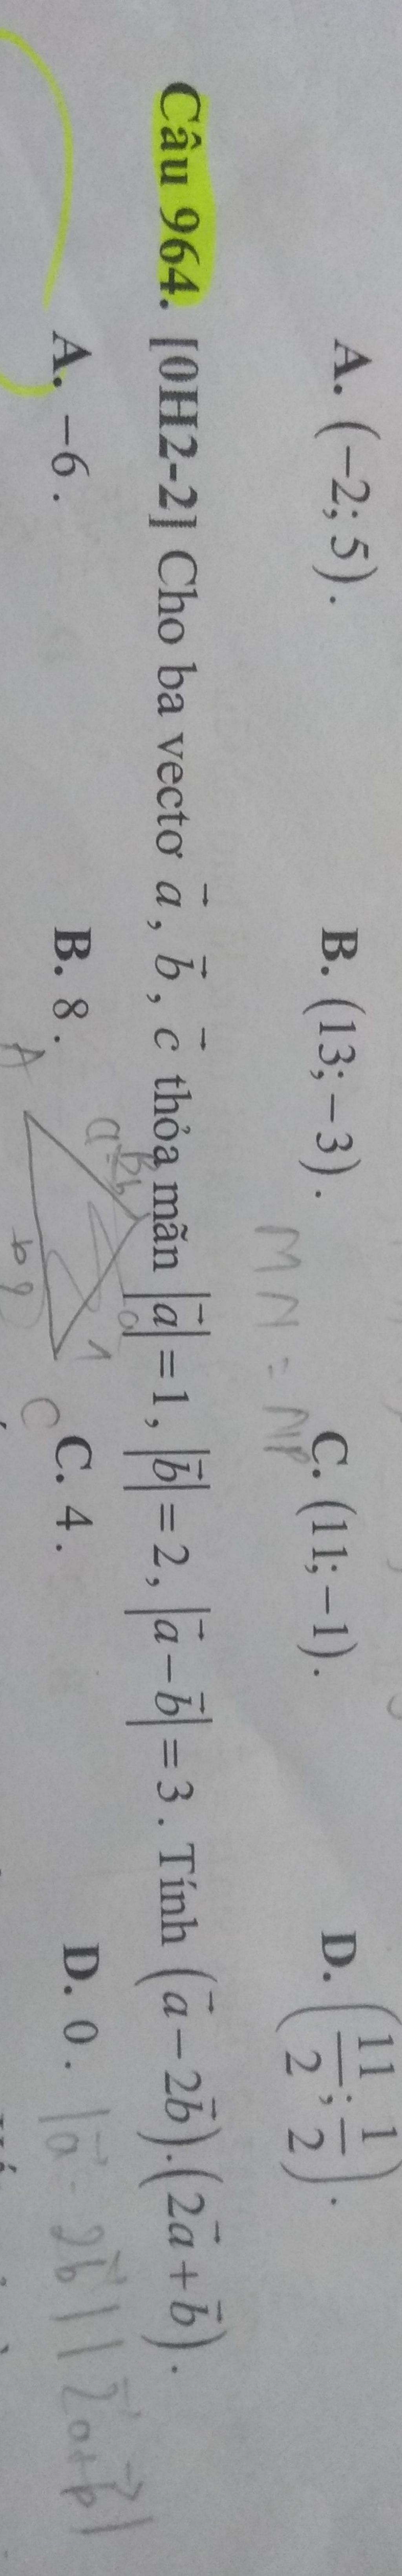 A. (−2; 5). B. (13; −3). C. (11; −1). D. (11/2; 1/2).
MN = NP
Câu 964. [0H2-2] Cho ba vectơ a⃗, b⃗, c⃗ thỏa mãn |a⃗| = 1, |b⃗| = 2, |a⃗ − b⃗| = 3. Tính (a⃗ − 2b⃗).(2a⃗ + b⃗).
A. −6. B. 8. C. 4. D. 0.
|a⃗ - 2b⃗| |2a⃗+b⃗|
B
a
1
A
b
C